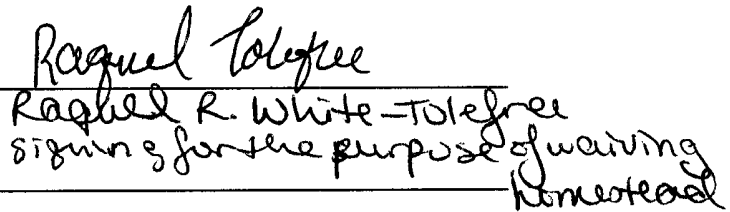 Raquel Tolefree
Raquel R. White-Tolefree
signing for the purpose of waiving
homestead